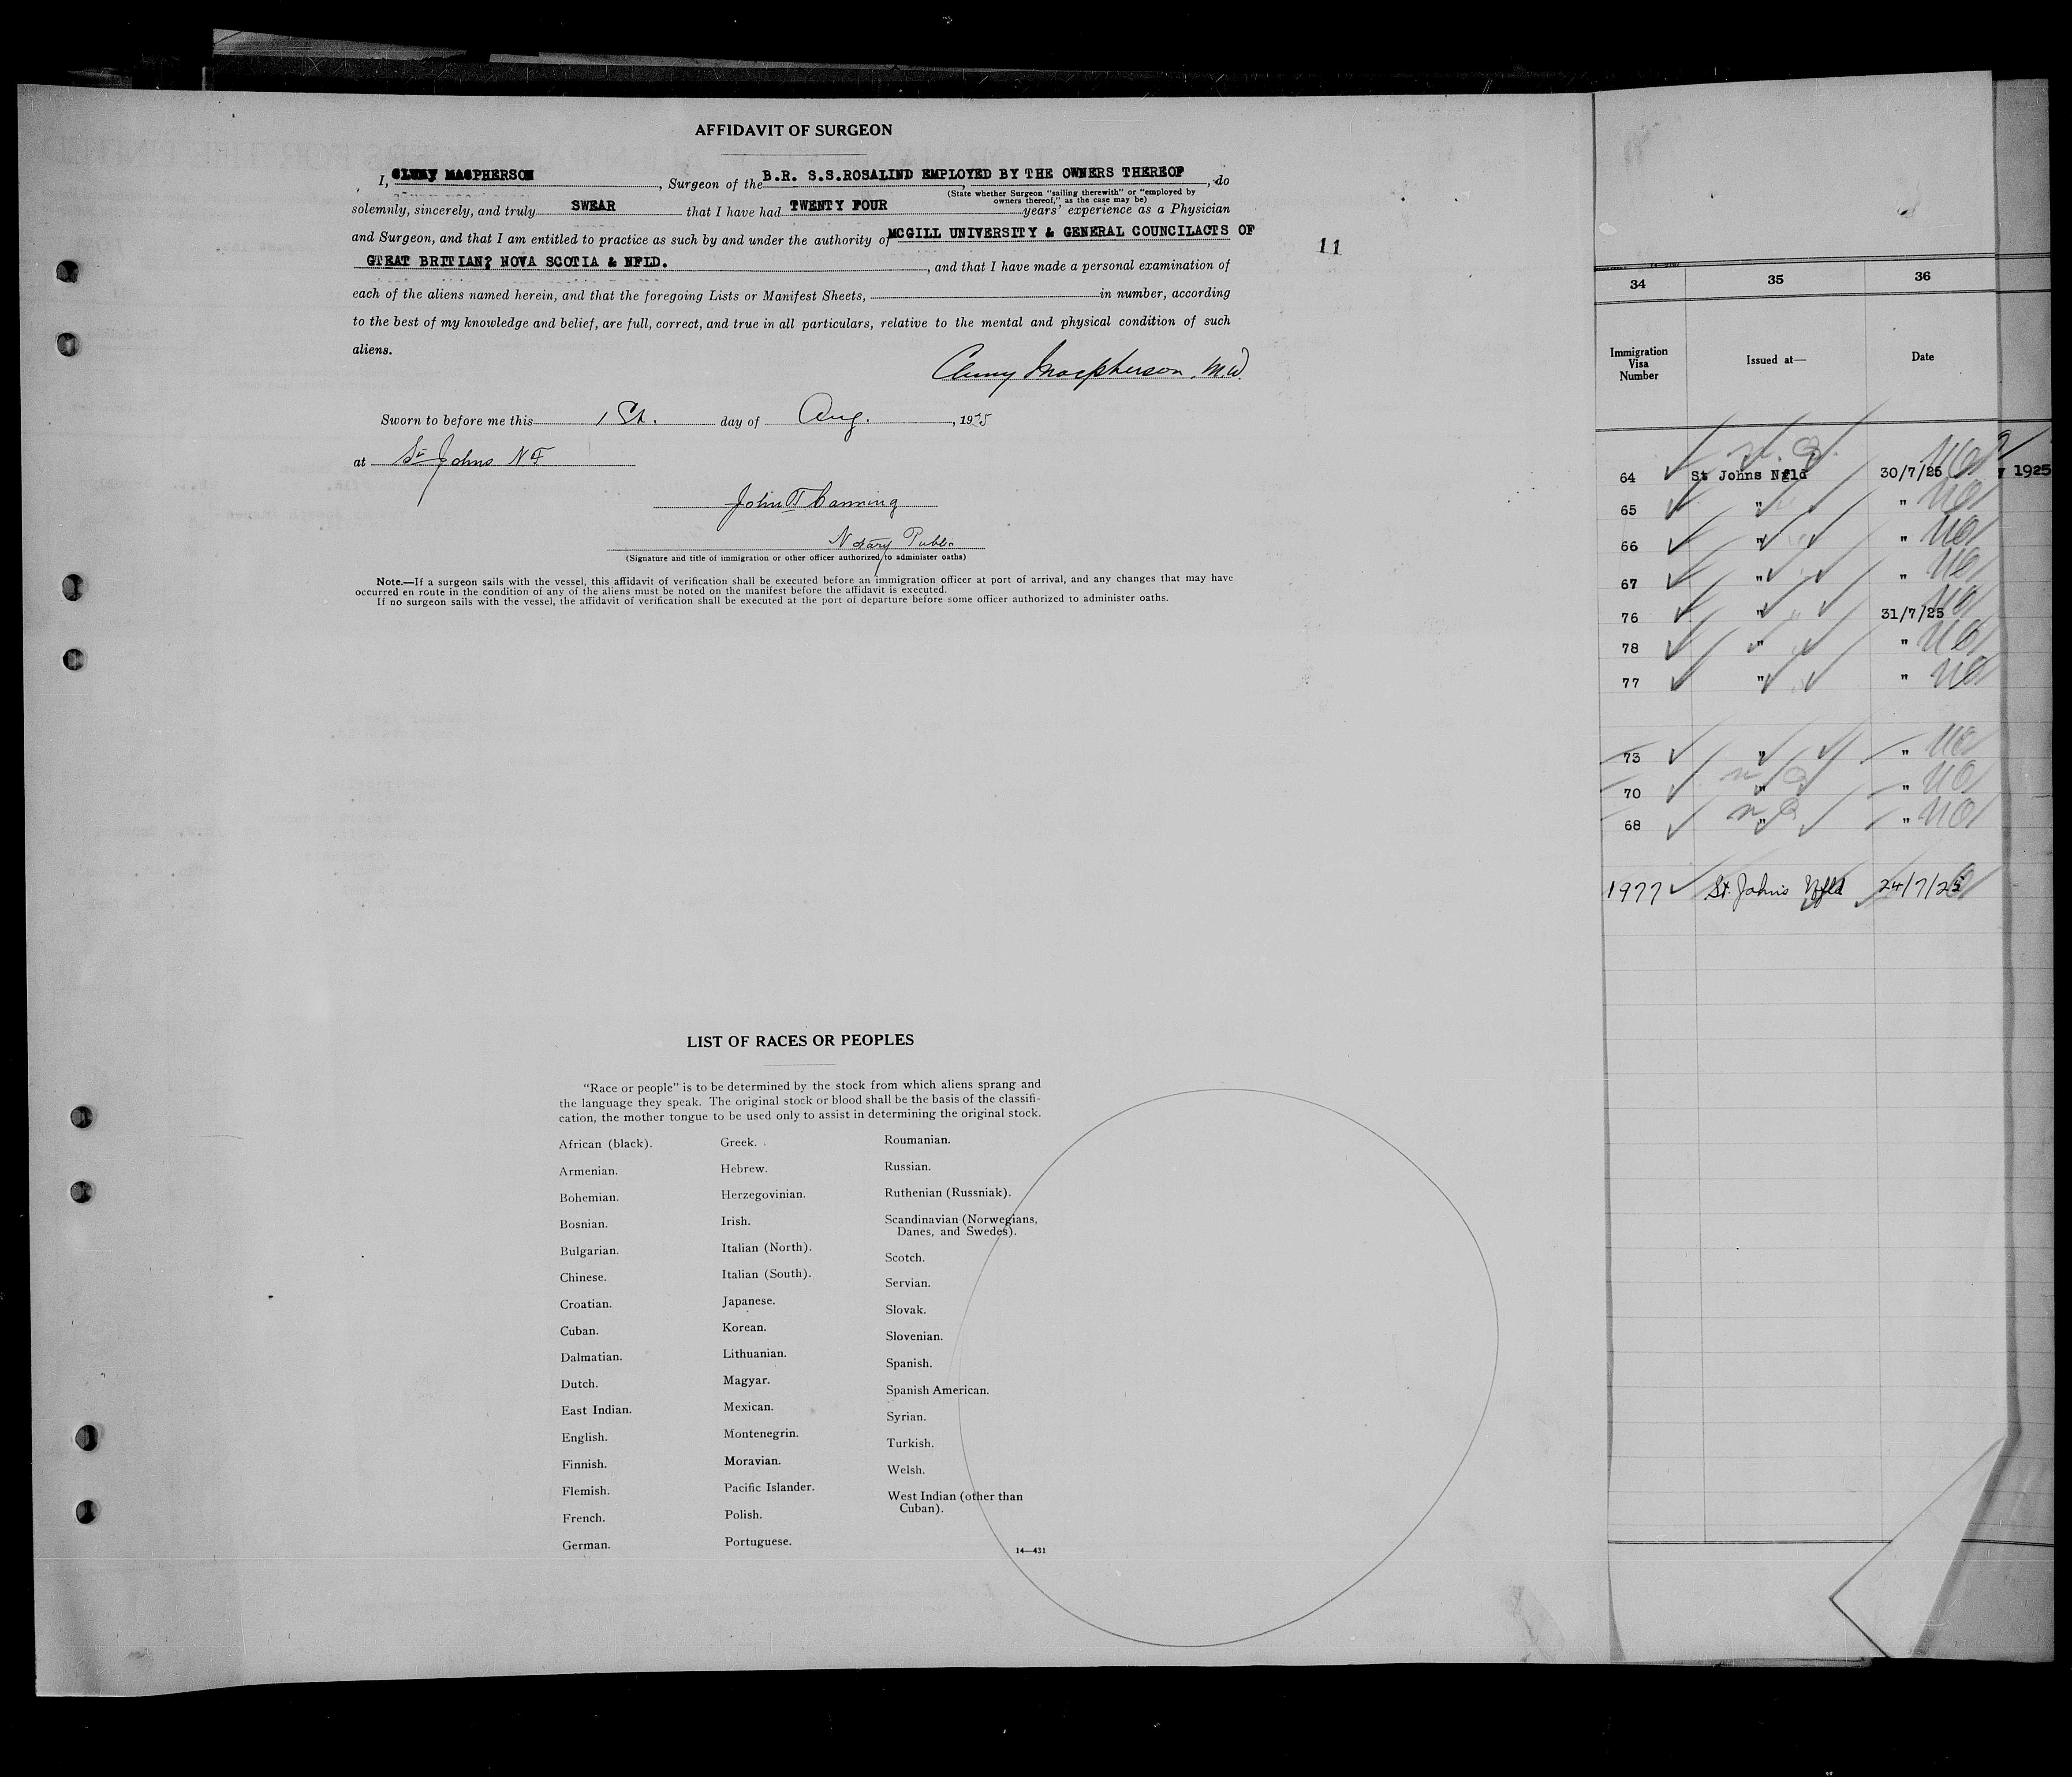 AFFIDAVIT OF SURGEON
I, CLUNY MACPHERSON, Surgeon of the B.R. S.S.ROSALIND EMPLOYED BY THE OWNERS THEREOF, do
(State whether Surgeon "sailing therewith" or "employed by
owners thereof," as the case may be)
solemnly, sincerely, and truly SWEAR that I have had TWENTY FOUR years' experience as a Physician
and Surgeon, and that I am entitled to practice as such by and under the authority of MCGILL UNIVERSITY & GENERAL COUNCILACTS OF
GTEAT BRITIAN? NOVA SCOTIA & NFLD. , and that I have made a personal examination of
each of the aliens named herein, and that the foregoing Lists or Manifest Sheets, in number, according
to the best of my knowledge and belief, are full, correct, and true in all particulars, relative to the mental and physical condition of such
aliens.
Cluny Macpherson, M.D.
Sworn to before me this 1 St. day of Aug. , 1925
at St Johns NF
John T Canning
Notary Public
(Signature and title of immigration or other officer authorized to administer oaths)
Note.—If a surgeon sails with the vessel, this affidavit of verification shall be executed before an immigration officer at port of arrival, and any changes that may have
occurred en route in the condition of any of the aliens must be noted on the manifest before the affidavit is executed.
If no surgeon sails with the vessel, the affidavit of verification shall be executed at the port of departure before some officer authorized to administer oaths.
11
LIST OF RACES OR PEOPLES
"Race or people" is to be determined by the stock from which aliens sprang and
the language they speak. The original stock or blood shall be the basis of the classifi-
cation, the mother tongue to be used only to assist in determining the original stock.
African (black).
Armenian.
Bohemian.
Bosnian.
Bulgarian.
Chinese.
Croatian.
Cuban.
Dalmatian.
Dutch.
East Indian.
English.
Finnish.
Flemish.
French.
German.
Greek.
Hebrew.
Herzegovinian.
Irish.
Italian (North).
Italian (South).
Japanese.
Korean.
Lithuanian.
Magyar.
Mexican.
Montenegrin.
Moravian.
Pacific Islander.
Polish.
Portuguese.
Roumanian.
Russian.
Ruthenian (Russniak).
Scandinavian (Norwegians,
Danes, and Swedes).
Scotch.
Servian.
Slovak.
Slovenian.
Spanish.
Spanish American.
Syrian.
Turkish.
Welsh.
West Indian (other than
Cuban).
14—431
34 35 36
Immigration
Visa
Number
Issued at—
Date
64 St Johns Nfld 30/7/25
1925
65 " "
66 " "
67 " "
76 " 31/7/25
78 " "
77 " "
73 " "
70 " "
68 " "
1977 St. John's Nfld 24/7/25